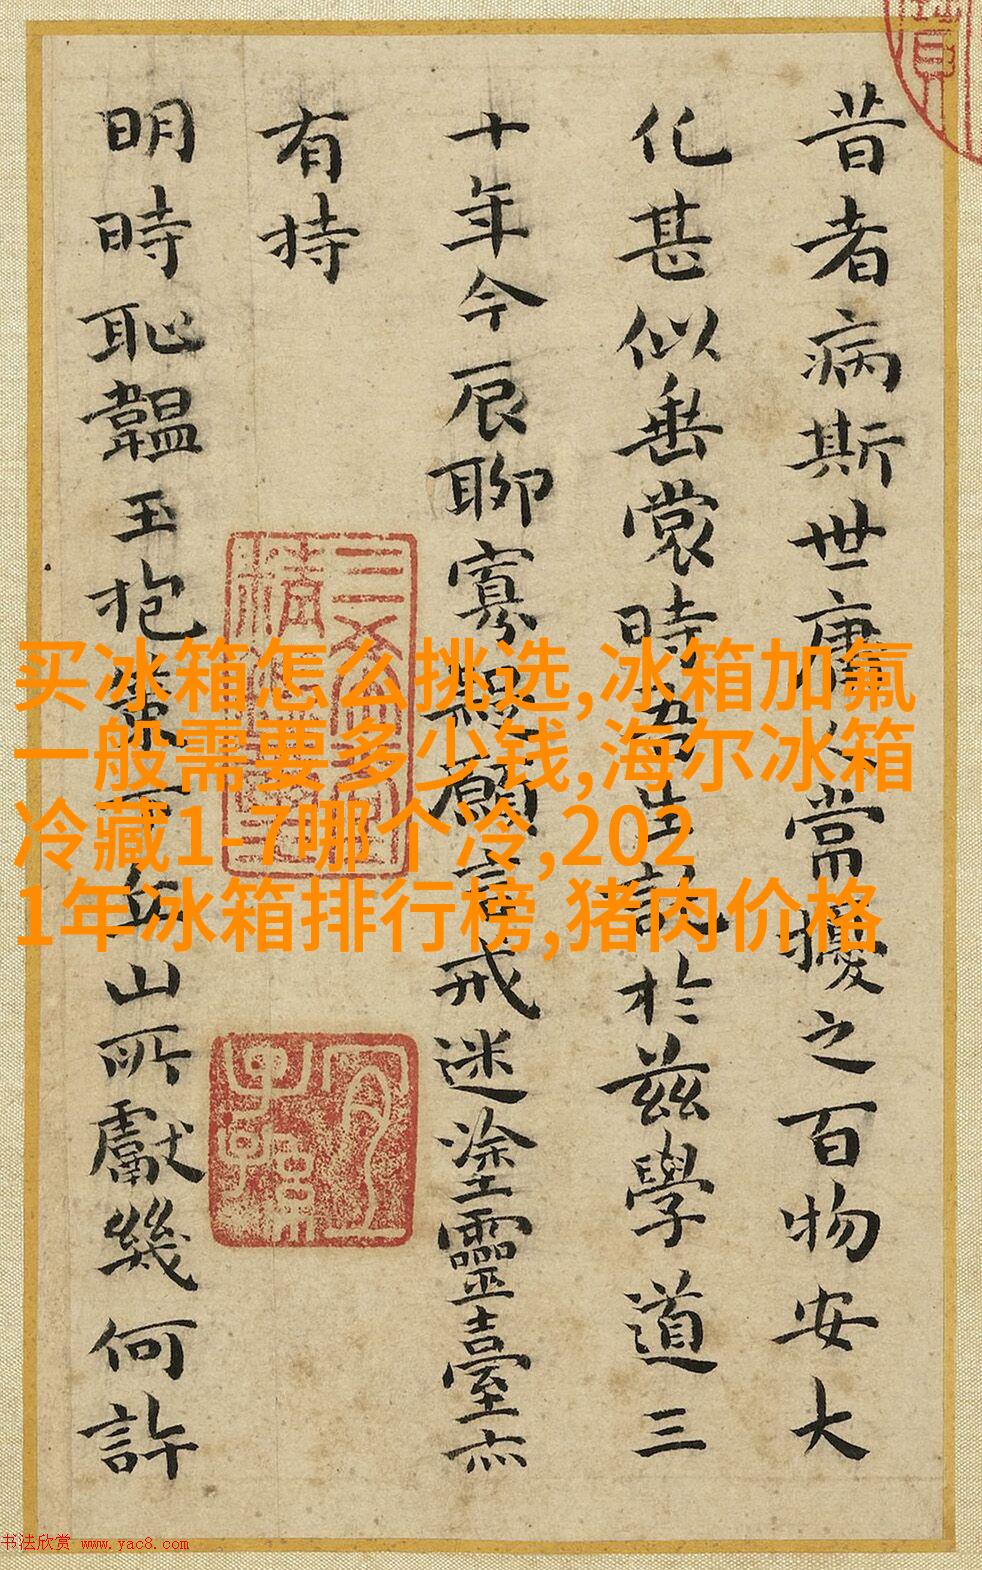 昔者病斯世庸人常擾之百物安大
化甚似垂裳時吾生説於兹學道三
十年今辰聊寡顧言戒迷塗靈臺亦
有持
明時恥韞玉抱山所獻幾何許
三希堂精鑑璽
宜子孫
买冰箱怎么挑选,冰箱加氟
一般需要多少钱,海尔冰箱
冷藏1-7哪个冷,202
1年冰箱排行榜,猪肉价格
书法欣赏 www.yac8.com